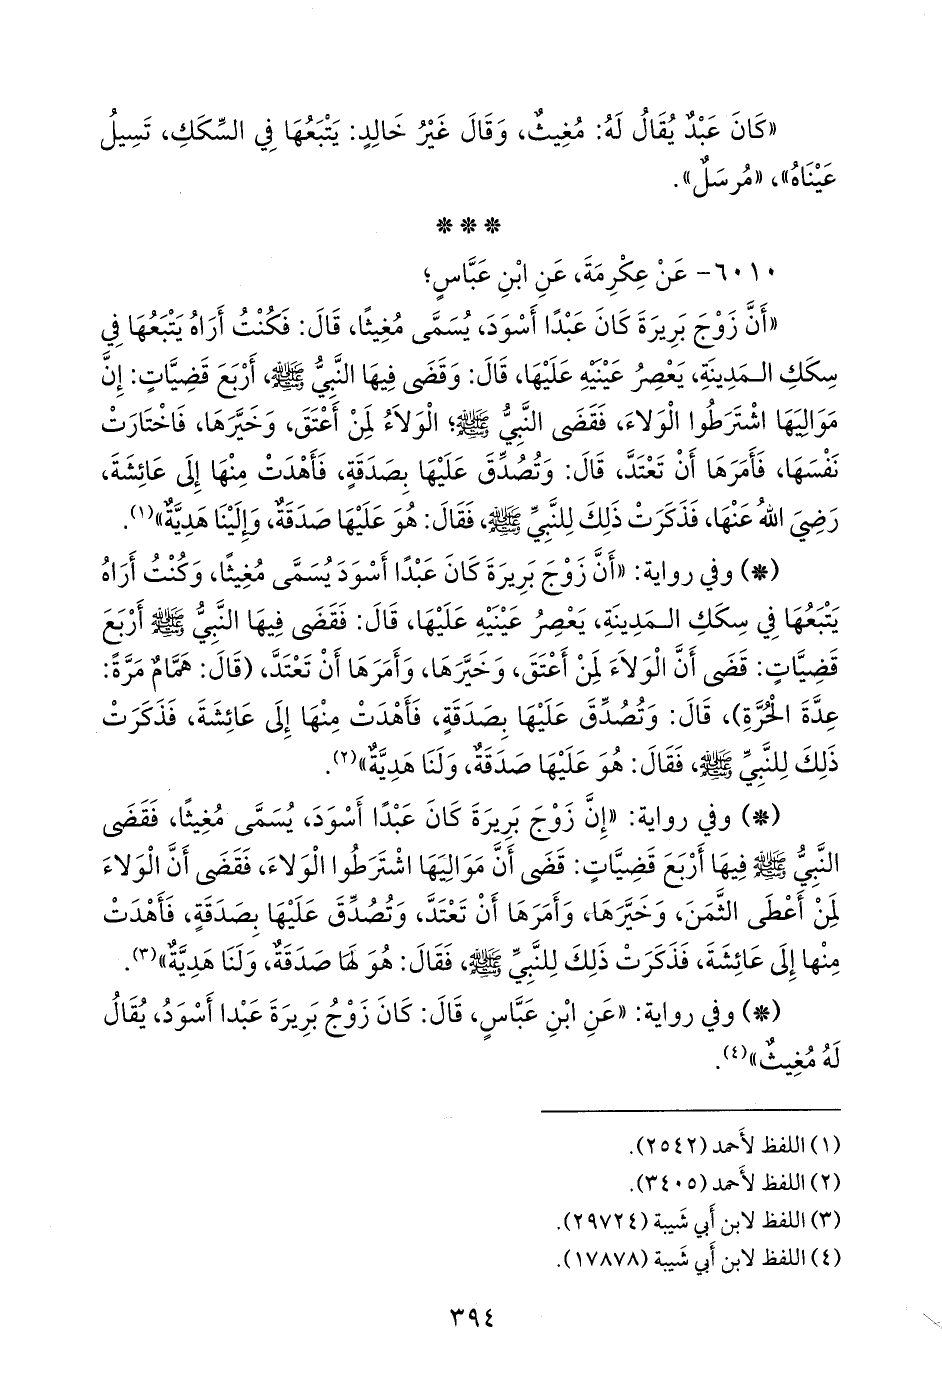 «كَانَ عَبْدٌ يُقَالُ لَهُ: مُغِيثٌ، وَقَالَ غَيْرُ خَالِدٍ: يَتْبَعُهَا فِي السِّكَكِ، تَسِيلُ
عَيْنَاهُ»، «مُرسَلٌ».
* * *
٦٠١٠- عَنْ عِكْرِمَةَ، عَنِ ابْنِ عَبَّاسٍ؛
«أَنَّ زَوْجَ بَرِيرَةَ كَانَ عَبْدًا أَسْوَدَ، يُسَمَّى مُغِيثًا، قَالَ: فَكُنْتُ أَرَاهُ يَتْبَعُهَا فِي
سِكَكِ الـمَدِينةِ، يَعْصِرُ عَيْنَيْهِ عَلَيْهَا، قَالَ: وَقَضَى فِيهَا النَّبِيُّ ﷺ، أَرْبَعَ قَضِيَّاتٍ: إِنَّ
مَوَالِيَهَا اشْتَرَطُوا الْوَلَاءَ، فَقَضَى النَّبِيُّ ﷺ؛ الْوَلَاءُ لِمَنْ أَعْتَقَ، وَخَيَّرَهَا، فَاخْتَارَتْ
نَفْسَهَا، فَأَمَرَهَا أَنْ تَعْتَدَّ، قَالَ: وَتُصُدِّقَ عَلَيْهَا بِصَدَقَةٍ، فَأَهْدَتْ مِنْهَا إِلَى عَائِشَةَ،
رَضِيَ اللهُ عَنْهَا، فَذَكَرَتْ ذَلِكَ لِلنَّبِيِّ ﷺ، فَقَالَ: هُوَ عَلَيْهَا صَدَقَةٌ، وَإِلَيْنَا هَدِيَّةٌ»(١).
(*) وفي رواية: «أَنَّ زَوْجَ بَرِيرَةَ كَانَ عَبْدًا أَسْوَدَ يُسَمَّى مُغِيثًا، وَكُنْتُ أَرَاهُ
يَتْبَعُهَا فِي سِكَكِ الـمَدِينةِ، يَعْصِرُ عَيْنَيْهِ عَلَيْهَا، قَالَ: فَقَضَى فِيهَا النَّبِيُّ ﷺ أَرْبَعَ
قَضِيَّاتٍ: قَضَى أَنَّ الْوَلَاءَ لِمَنْ أَعْتَقَ، وَخَيَّرَهَا، وَأَمَرَهَا أَنْ تَعْتَدَّ، (قَالَ: هَمَّامٌ مَرَّةً:
عِدَّةَ الْحُرَّةِ)، قَالَ: وَتُصُدِّقَ عَلَيْهَا بِصَدَقَةٍ، فَأَهْدَتْ مِنْهَا إِلَى عَائِشَةَ، فَذَكَرَتْ
ذَلِكَ لِلنَّبِيِّ ﷺ، فَقَالَ: هُوَ عَلَيْهَا صَدَقَةٌ، وَلَنَا هَدِيَّةٌ»(٢).
(*) وفي رواية: «إِنَّ زَوْجَ بَرِيرَةَ كَانَ عَبْدًا أَسْوَدَ، يُسَمَّى مُغِيثًا، فَقَضَى
النَّبِيُّ ﷺ فِيهَا أَرْبَعَ قَضِيَّاتٍ: قَضَى أَنَّ مَوَالِيَهَا اشْتَرَطُوا الْوَلَاءَ، فَقَضَى أَنَّ الْوَلَاءَ
لِمَنْ أَعْطَى الثَّمَنَ، وَخَيَّرَهَا، وَأَمَرَهَا أَنْ تَعْتَدَّ، وَتُصُدِّقَ عَلَيْهَا بِصَدَقَةٍ، فَأَهْدَتْ
مِنْهَا إِلَى عَائِشَةَ، فَذَكَرَتْ ذَلِكَ لِلنَّبِيِّ ﷺ، فَقَالَ: هُوَ لَهَا صَدَقَةٌ، وَلَنَا هَدِيَّةٌ»(٣).
(*) وفي رواية: «عَنِ ابْنِ عَبَّاسٍ، قَالَ: كَانَ زَوْجُ بَرِيرَةَ عَبْدا أَسْوَدُ، يُقَالُ
لَهُ مُغِيثٌ»(٤).
(١) اللفظ لأَحمد (٢٥٤٢).
(٢) اللفظ لأَحمد (٣٤٠٥).
(٣) اللفظ لابن أَبي شَيبة (٢٩٧٢٤).
(٤) اللفظ لابن أَبي شَيبة (١٧٨٧٨).
٣٩٤